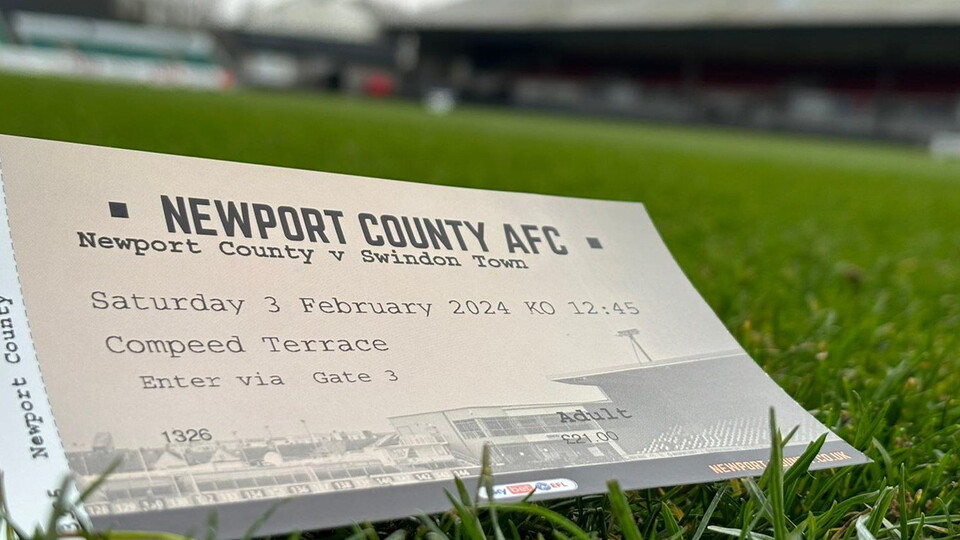 NEWPORT COUNTY AFC
Newport County v Swindon Town
Saturday 3 February 2024 KO 12:45
Compeed Terrace
Enter via Gate 3
Adult
1326
£21.00
NEWPORT
CO.UK
sky bet EFL
Newport County